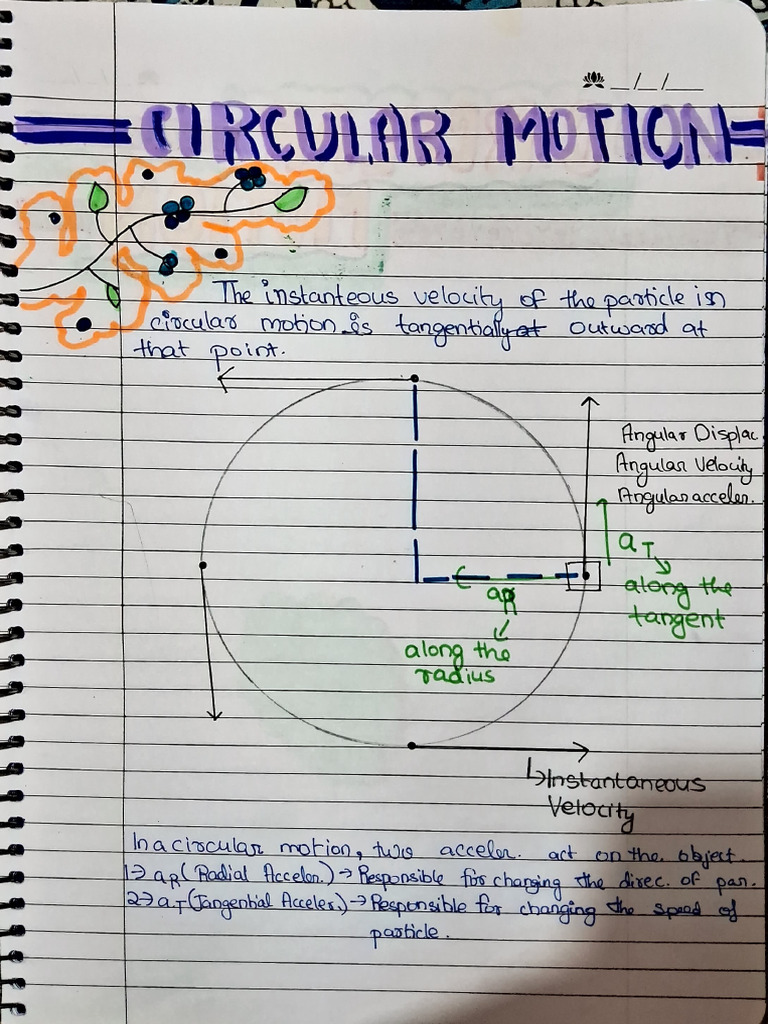 CIRCULAR MOTION
The instanteous velocity of the particle in
circular motion is tangentially at outward at
that point.
Angular Displac
Angular Velocity
Angular acceler.
aT
along the
tangent
aR
along the
radius
Instantaneous
Velocity
In a circular motion, two acceler. act on the object.
1→ aR (Radial Acceler.) → Responsible for changing the direc. of par.
2→ aT (Tangential Acceler.) → Responsible for changing the speed of
particle.